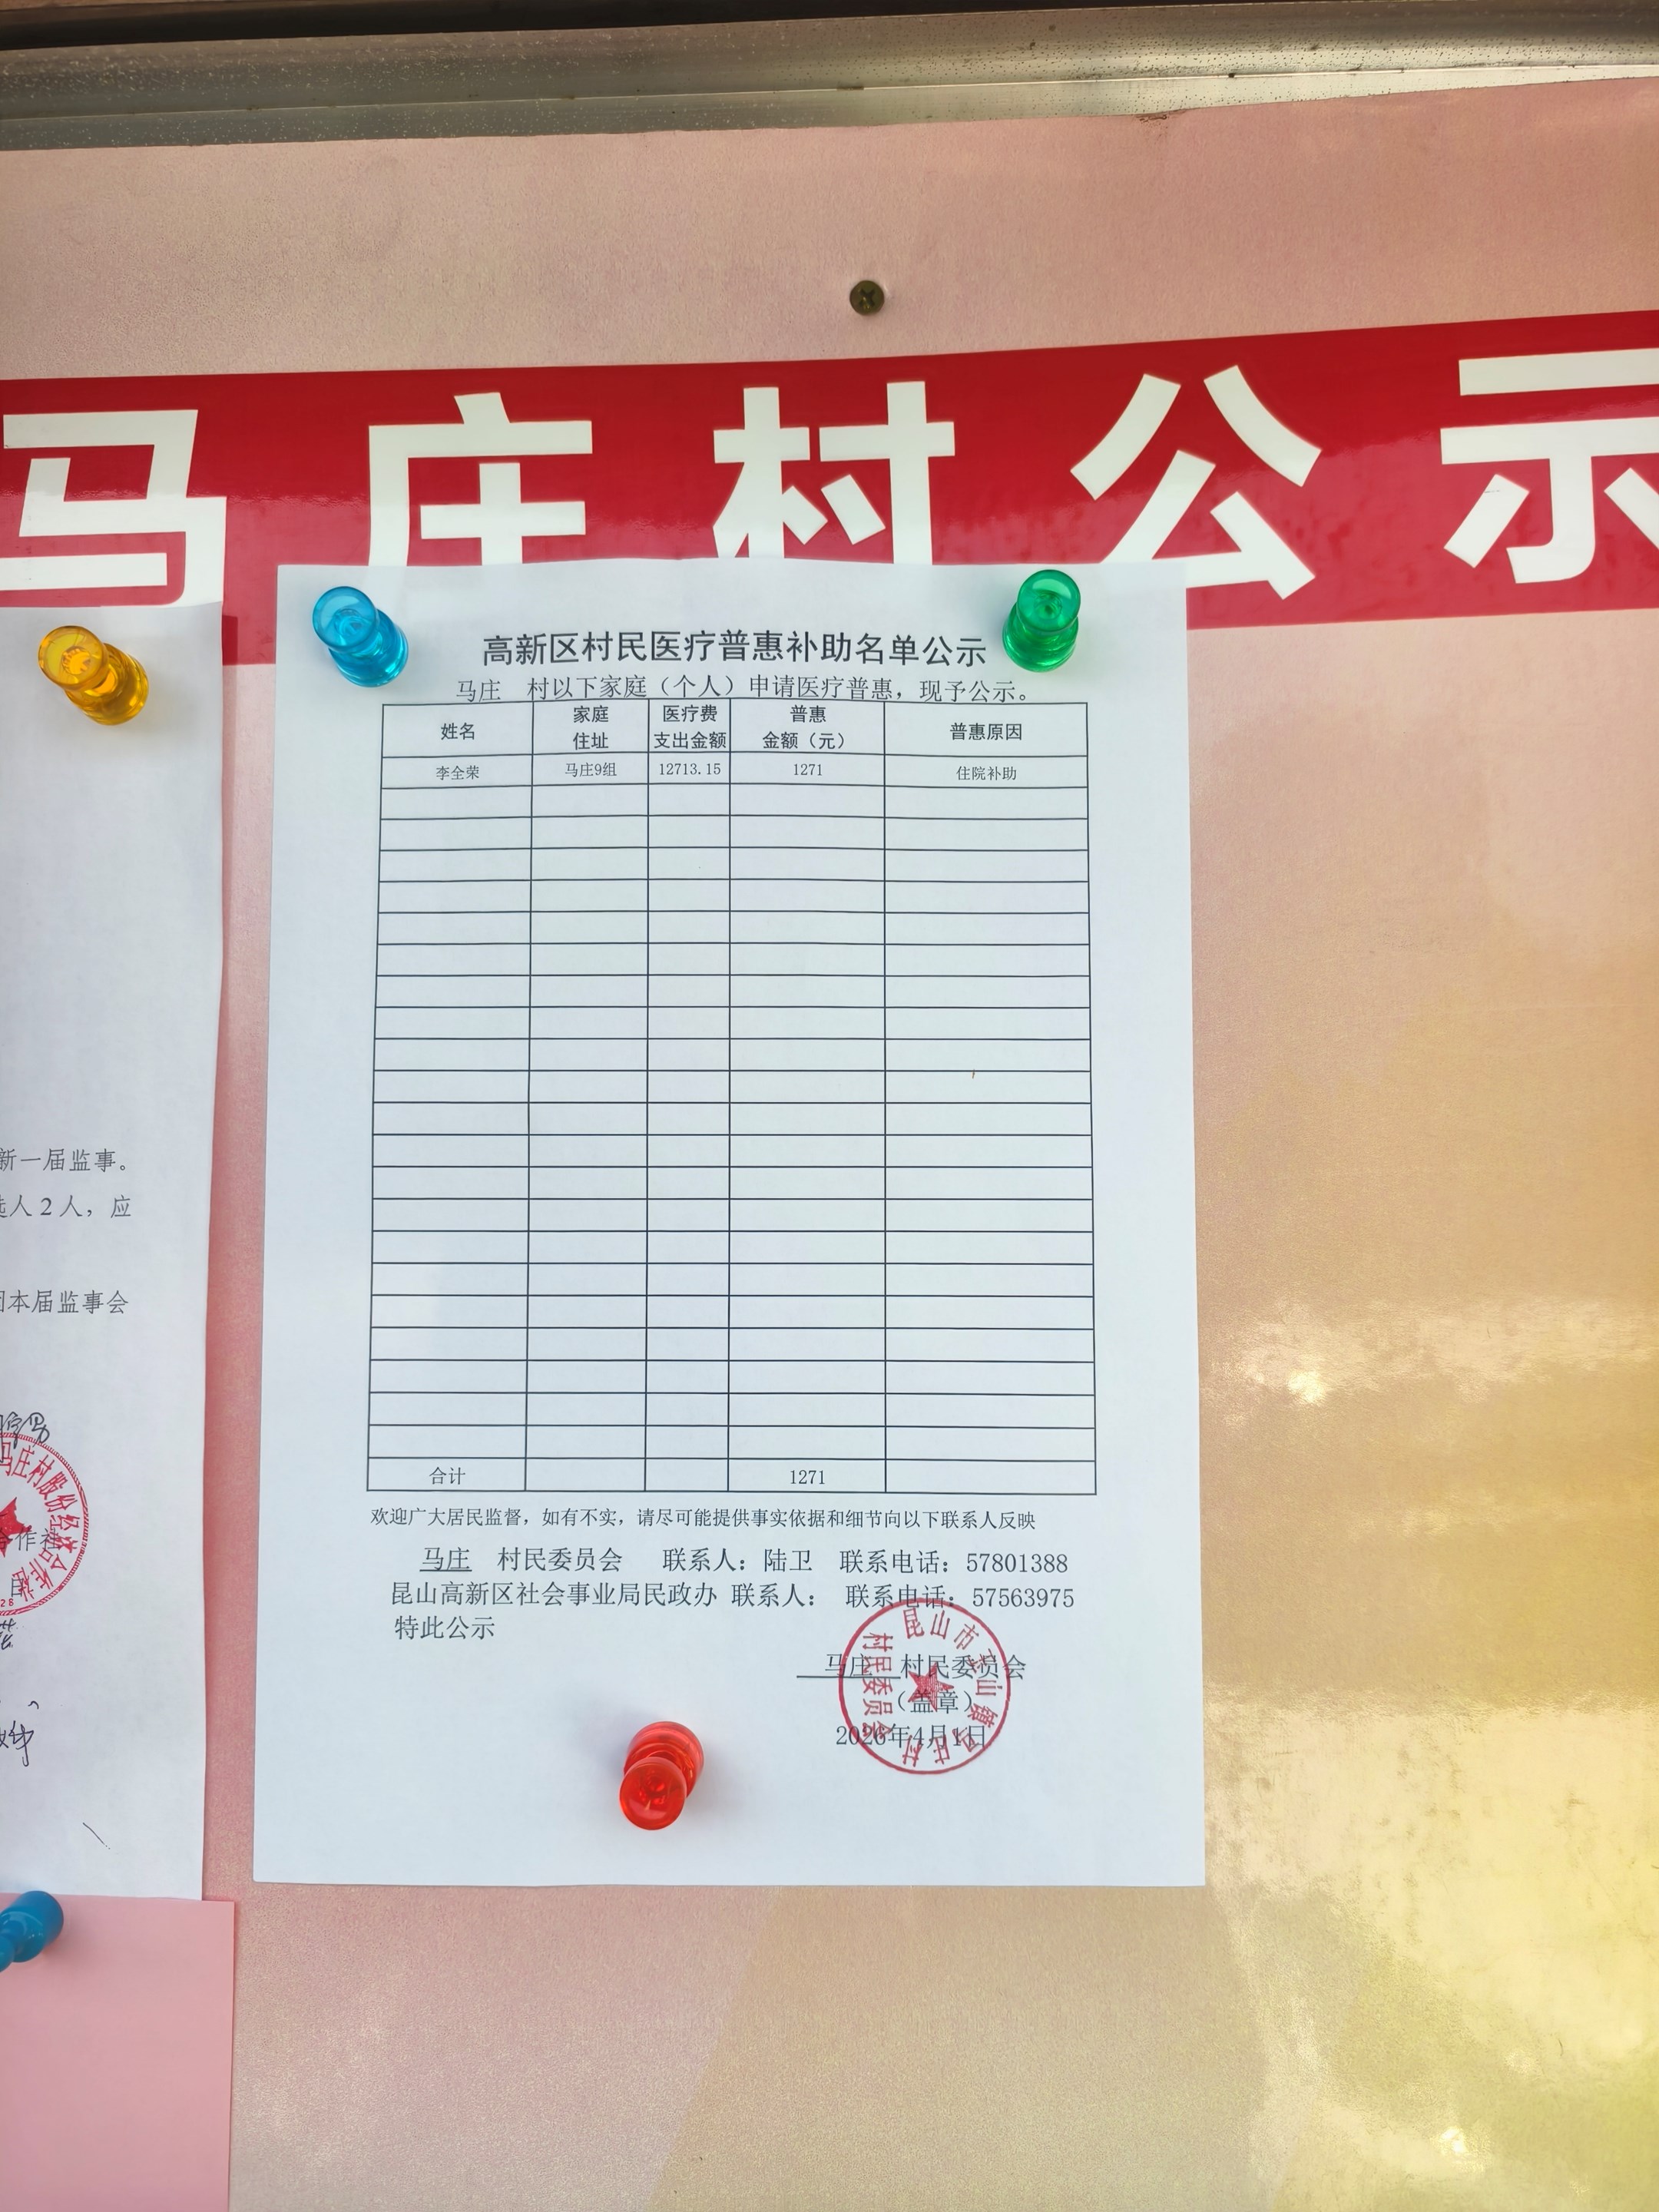 马庄村公示
高新区村民医疗普惠补助名单公示
马庄 村以下家庭（个人）申请医疗普惠，现予公示。
姓名 家庭住址 医疗费支出金额 普惠金额（元） 普惠原因
李全荣 马庄9组 12713.15 1271 住院补助
合计 1271
欢迎广大居民监督，如有不实，请尽可能提供事实依据和细节向以下联系人反映
马庄 村民委员会 联系人：陆卫 联系电话：57801388
昆山高新区社会事业局民政办 联系人： 联系电话：57563975
特此公示
马庄 村民委员会
（盖章）
2026年4月1日
昆山市玉山镇马庄村村民委员会
新一届监事。
人2人，应
本届监事会
马庄村股份经济合作社
合作社